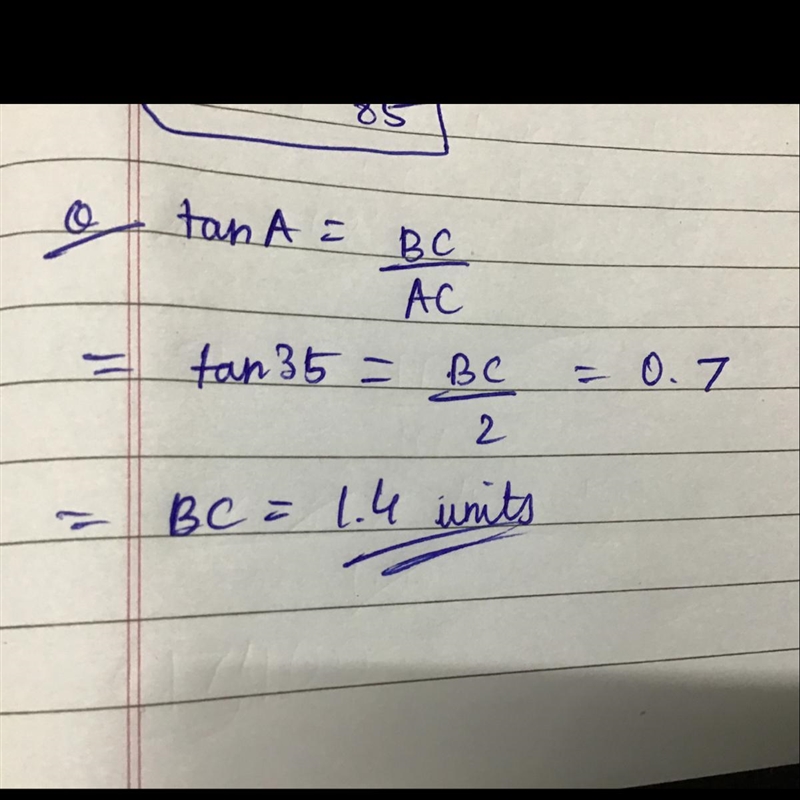 85
Q tan A = BC/AC
= tan 35 = BC/2 = 0.7
= BC = 1.4 units